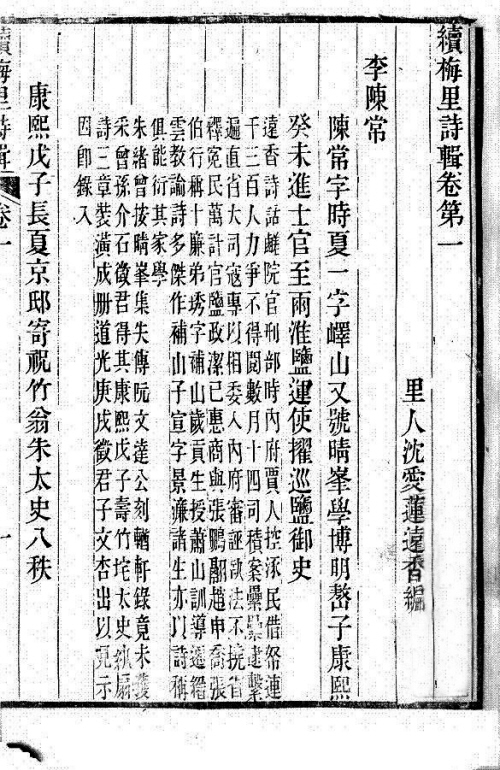 續梅里詩輯卷第一
里人沈愛蓮遠香編
李陳常
陳常字時夏一字嶧山又號晴峯學博明嶅子康熙
癸未進士官至兩淮鹽運使擢巡鹽御史
遠香詩話鹺院官刑部時內府賈人控涿民借帑連
千三百人力爭不得閱數月十四司積案纍纍逮繫
遍直省大司寇專以相委入內府審誣訊法不撓省
釋冤民萬計官鹽政潔己惠商與張鵬翮趙申喬張
伯行稱十廉弟琇字補山歲貢生授蕭山訓導遷縉
雲教諭詩多傑作補山子宣字景濂諸生亦以詩稱
俱能衍其家學
朱緒曾按晴峯集失傳阮文達公刻輶軒錄竟未獲
采曾孫介石徵君得其康熙戊子壽竹垞太史紈扇
詩三章裝潢成册道光庚戌徵君子文杏出以見示
因卽錄入
康熙戊子長夏京邸寄祝竹翁朱太史八秩
續梅里詩輯
卷一
一